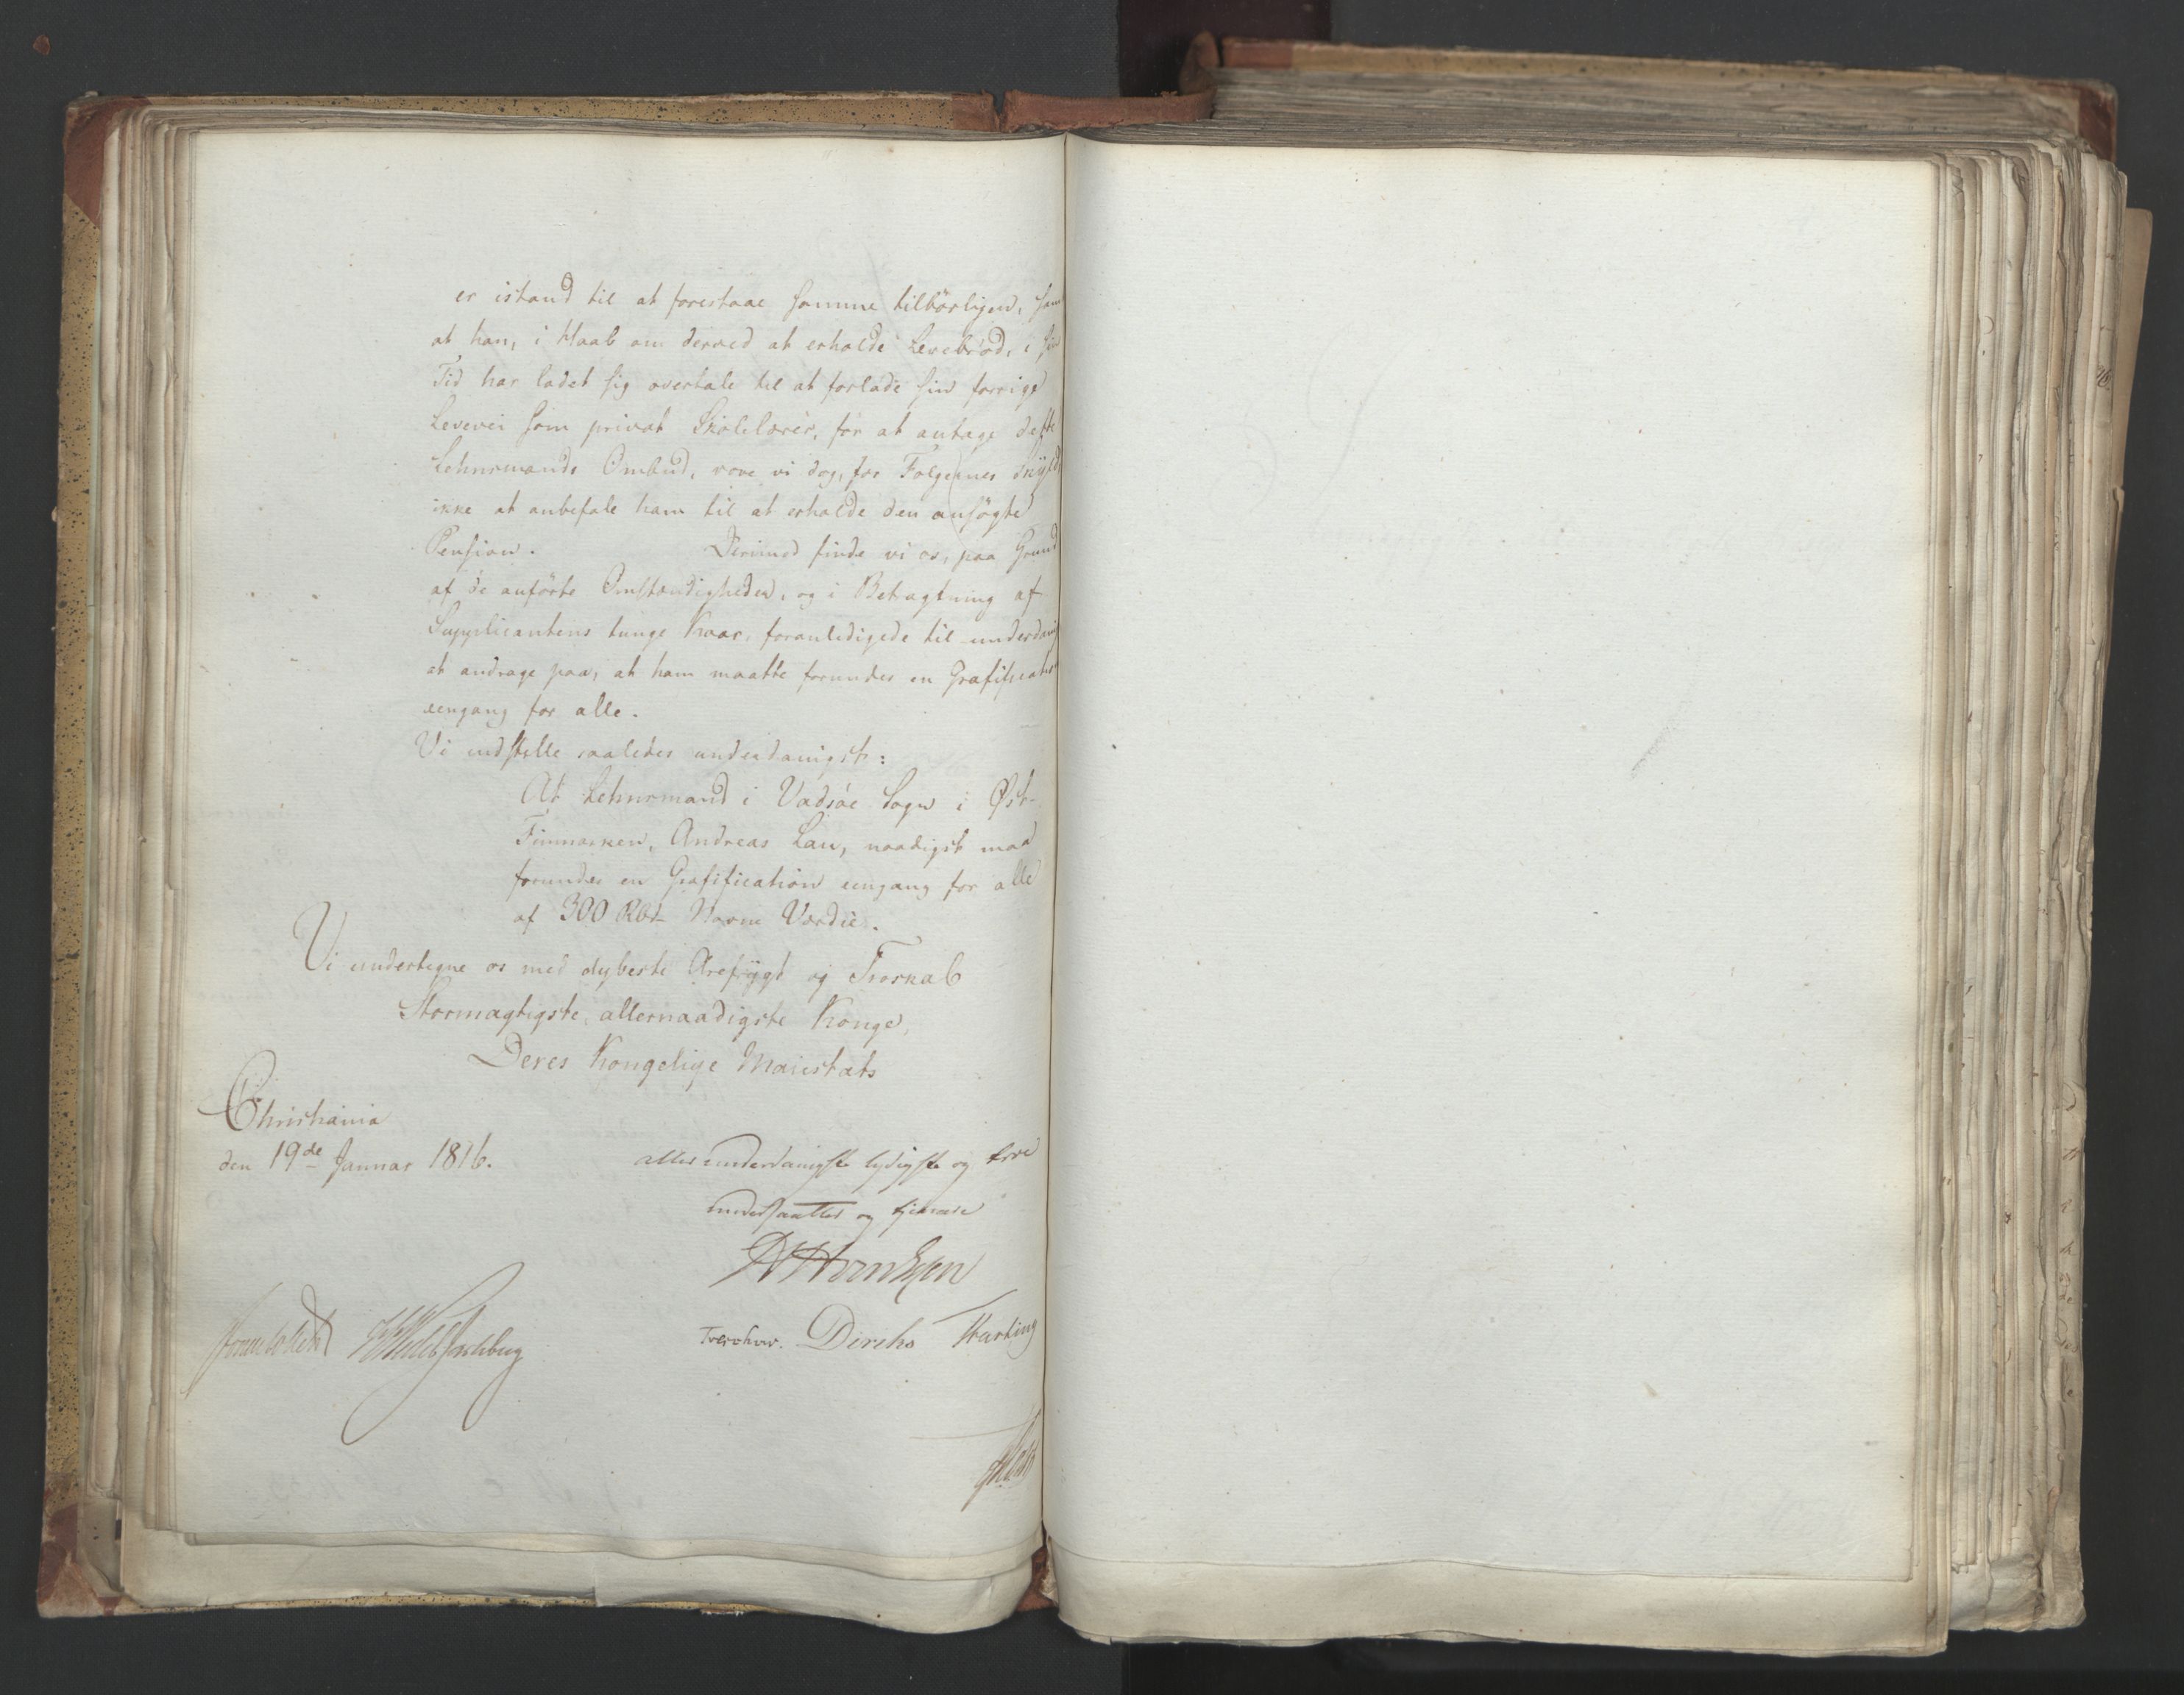 er istand til at forestaae samme tilbörligen, samt
at han, i Haab om derved at erholde Levebrød, i sin
Tid har ladet sig overtale til at forlade sin forrige
Levevei som privat Skolelærer, for at antage dette
Lehnsmands Ombud, vove vi dog, for Følgernes Skyld
ikke at anbefale ham til at erholde den ansögte
Pension. Derimod finde vi os, paa Grund
af de anförte Omstændigheder, og i Betragtning af
Supplicantens tunge Kaar, foranledigede til underdanigst
at andrage paa, at ham maatte forundes en Gratification
eengang for alle.
Vi indstille saaledes underdanigst:
At Lehnsmand i Vadsöe Sogn i Øst-
Finmarken, Andreas Lau, naadigst maa
forundes en Gratification eengang for alle
af 300 Rbd Navne Værdie.
Vi undertegne os med dybeste Ærefrygt og Troskab
Stormægtigste, allernaadigste Konge,
Deres Kongelige Maiestæts
Christiania
den 19de Januar 1816.
allerunderdanigste lydigste og troe
undersaatter og tjenere
Sommerhielm HWedel Jarlsberg
Treschow. Diriks Hartmg